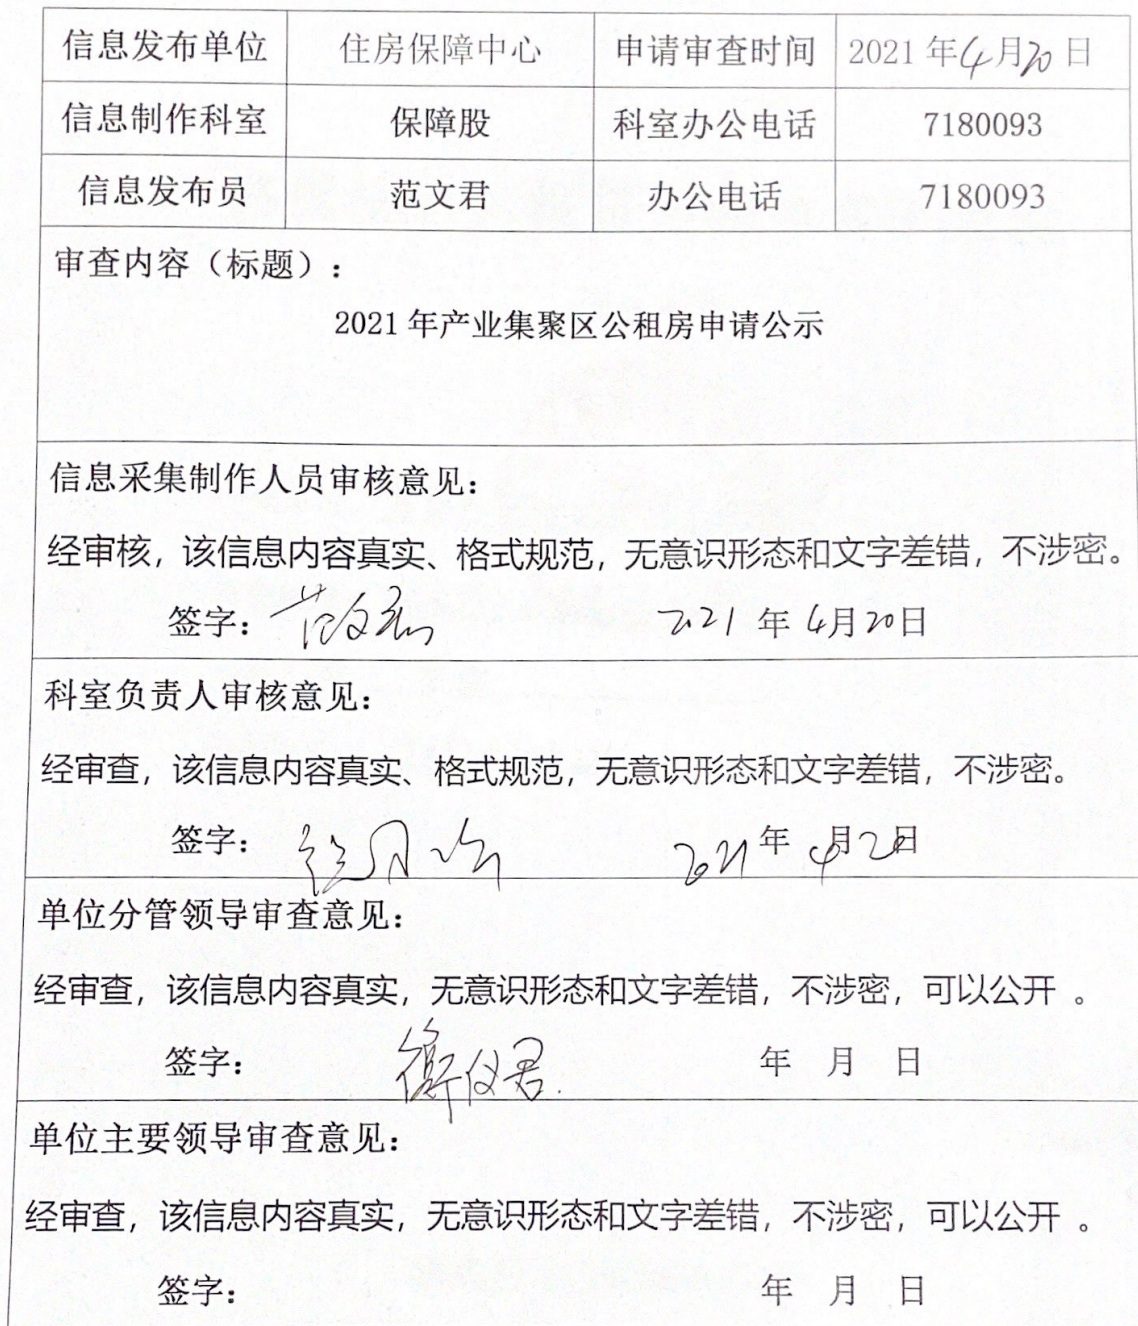 信息发布单位 住房保障中心 申请审查时间 2021年4月20日
信息制作科室 保障股 科室办公电话 7180093
信息发布员 范文君 办公电话 7180093
审查内容（标题）：
2021年产业集聚区公租房申请公示
信息采集制作人员审核意见：
经审核，该信息内容真实、格式规范，无意识形态和文字差错，不涉密。
签字：范文君 2021年4月20日
科室负责人审核意见：
经审查，该信息内容真实、格式规范，无意识形态和文字差错，不涉密。
签字： 2021年4月20日
单位分管领导审查意见：
经审查，该信息内容真实，无意识形态和文字差错，不涉密，可以公开 。
签字： 年 月 日
单位主要领导审查意见：
经审查，该信息内容真实，无意识形态和文字差错，不涉密，可以公开 。
签字： 年 月 日